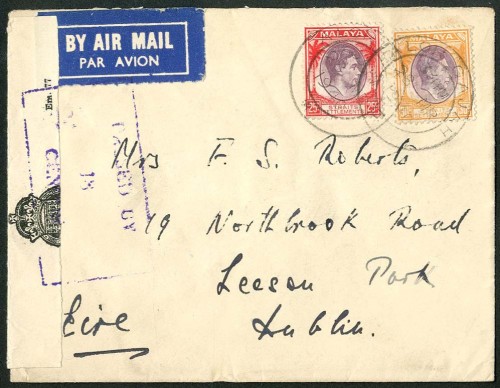 BY AIR MAIL
PAR AVION
MALAYA
MALAYA
25c
STRAITS
SETTLEMENTS
25c
PASSED BY
18
CEN
Mrs F. S. Roberts,
19 Northbrook Road
Leeson Park
Dublin.
Eire